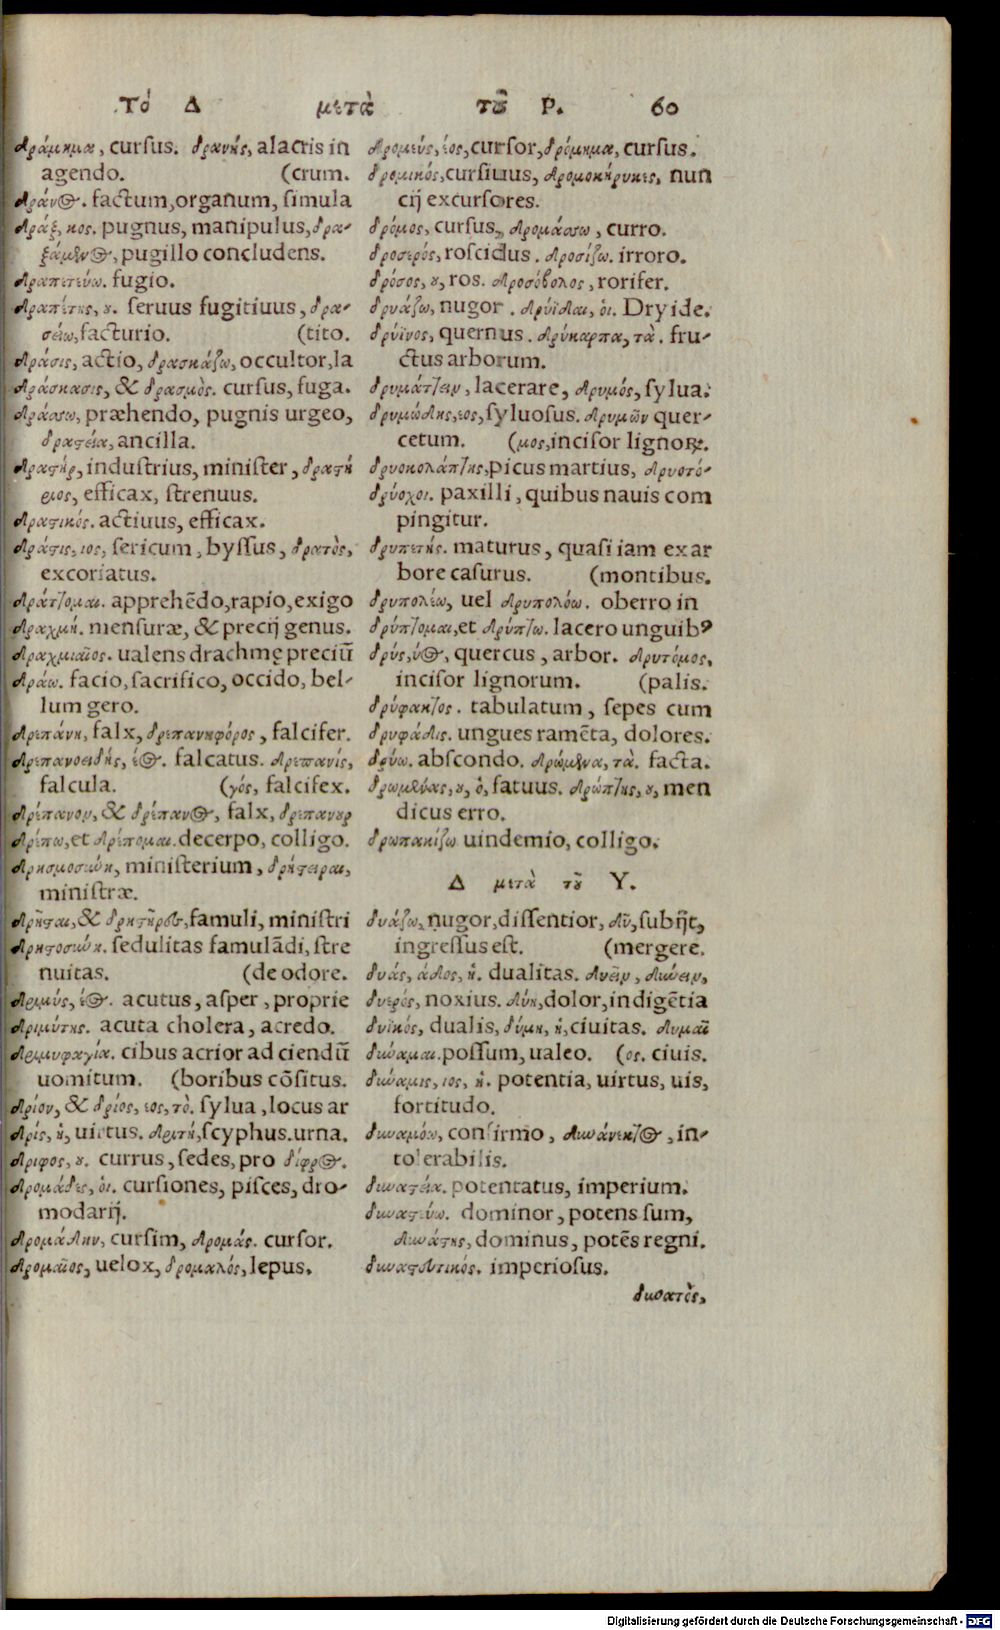 Τό Δ μετὰ τοῦ Ρ. 60
δράμημα, cursus. δρανής, alacris in
agendo. (crum.
δράνος. factum, organum, simula
δράξ, κος. pugnus, manipulus, δρα-
ξάμενος, pugillo concludens.
δραπετεύω. fugio.
δραπέτης, ου. seruus fugitiuus, δρα-
σείω, facturio. (tito.
δράσις, actio, δρασκάζω, occultor, la
δράσκασις, & δρασμὸς. cursus, fuga.
δράσσω, præhendo, pugnis urgeo,
δραστεία, ancilla.
δραστήρ, industrius, minister, δραστή
ριος, efficax, strenuus.
δραστικός. actiuus, efficax.
δράστις, ιος, sericum, byssus, δρατὸς,
excoriatus.
δράττομαι. apprehēdo, rapio, exigo
δραχμή. mensuræ, & precij genus.
δραχμιαῖος. ualens drachmę preciū
δράω. facio, sacrifico, occido, bel-
lum gero.
δρεπάνη, falx, δρεπανηφόρος, falcifer.
δρεπανοειδής, έος. falcatus. δρεπανίς,
falcula. (γός, falcifex.
δρέπανον, & δρέπανος, falx, δρεπανουρ
δρέπω, et δρέπομαι. decerpo, colligo.
δρησμοσύνη, ministerium, δρήστειραι,
ministræ.
δρῆσται, & δρηστῆρες, famuli, ministri
δρηστοσύνη. sedulitas famulādi, stre
nuitas. (de odore.
δριμύς, έος. acutus, asper, proprie
δριμύτης. acuta cholera, acredo.
δριμυφαγία. cibus acrior ad ciendū
uomitum. (boribus cōsitus.
δρίον, & δρίος, εος, τό. sylua, locus ar
δρίς, ἡ, uirtus. δριτή, scyphus. urna.
δριφος, ου. currus, sedes, pro δίφρος.
δρομάδες, οἱ. cursiones, pisces, dro-
modarij.
δρομάδην, cursim, δρομάς. cursor.
δρομαῖος, uelox, δρομαλός, lepus.
δρομεύς, έος, cursor, δρόμημα, cursus.
δρομικός, cursiuus, δρομοκήρυκες, nun
cij excursores.
δρόμος, cursus, δρομάσσω, curro.
δροσερός, roscidus. δροσίζω. irroro.
δρόσος, ου, ros. δροσόβολος, rorifer.
δρυάζω, nugor. δρυΐδαι, οἱ. Dryide.
δρύϊνος, quernus. δρύκαρπα, τὰ. fru-
ctus arborum.
δρυμάττειν, lacerare, δρυμός, sylua.
δρυμώδης, εος, syluosus. δρυμῶν quer-
cetum. (μος, incisor lignorꝝ.
δρυοκολάπτης, picus martius, δρυοτό-
δρύοχοι. paxilli, quibus nauis com
pingitur.
δρυπετής. maturus, quasi iam ex ar
bore casurus. (montibus.
δρυπολέω, uel δρυπολόω. oberro in
δρύπτομαι, et δρύπτω. lacero unguibꝰ
δρύς, ύος, quercus, arbor. δρυτόμος,
incisor lignorum. (palis.
δρύφακτος. tabulatum, sepes cum
δρυφάδις. ungues ramēta, dolores.
δρύω. abscondo. δρώμενα, τὰ. facta.
δρωμένας, ου, ὁ, fatuus. δρώπτης, ου, men
dicus erro.
δρωπακίζω uindemio, colligo.
Δ μετὰ τοῦ Υ.
δυάζω, nugor, dissentior, δῦ, subijt,
ingressus est. (mergere.
δυάς, άδος, ἡ. dualitas. δυεῖν, δύνειν,
δυερός, noxius. δύη, dolor, indigētia
δυϊκός, dualis, δύμη, ἡ, ciuitas. δυμαῖ
δύναμαι. possum, ualeo. (ος. ciuis.
δύναμις, ιος, ἡ. potentia, uirtus, uis,
fortitudo.
δυναμόω, confirmo, δυνάνεκτος, in-
tolerabilis.
δυναστεία. potentatus, imperium.
δυναστεύω. dominor, potens sum,
δυνάστης, dominus, potēs regni.
δυναστευτικός. imperiosus.
δυνατὸς,
Digitalisierung gefördert durch die Deutsche Forschungsgemeinschaft - DFG